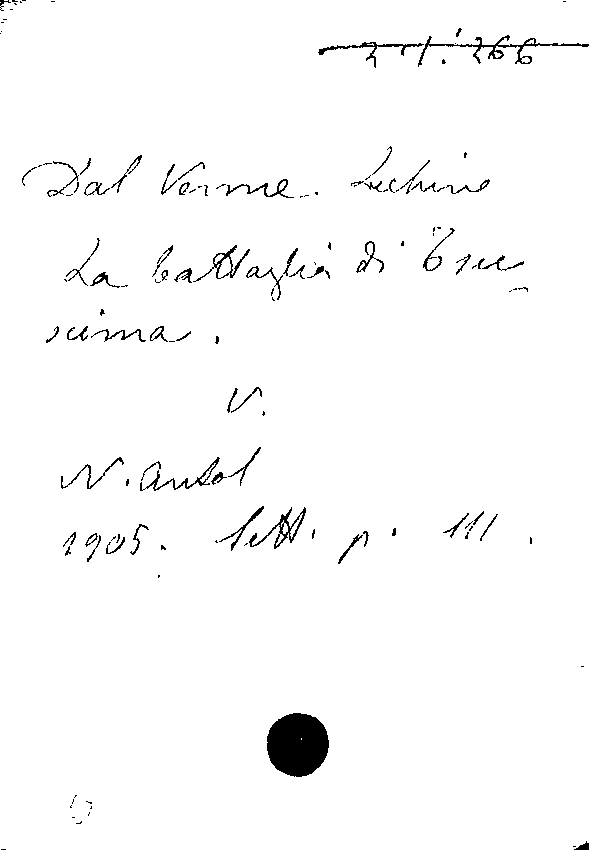 Dal Verme. Luchino
La battaglia di Tsu-
scima.
V.
N. Antol
1905. Sett. p. 111.